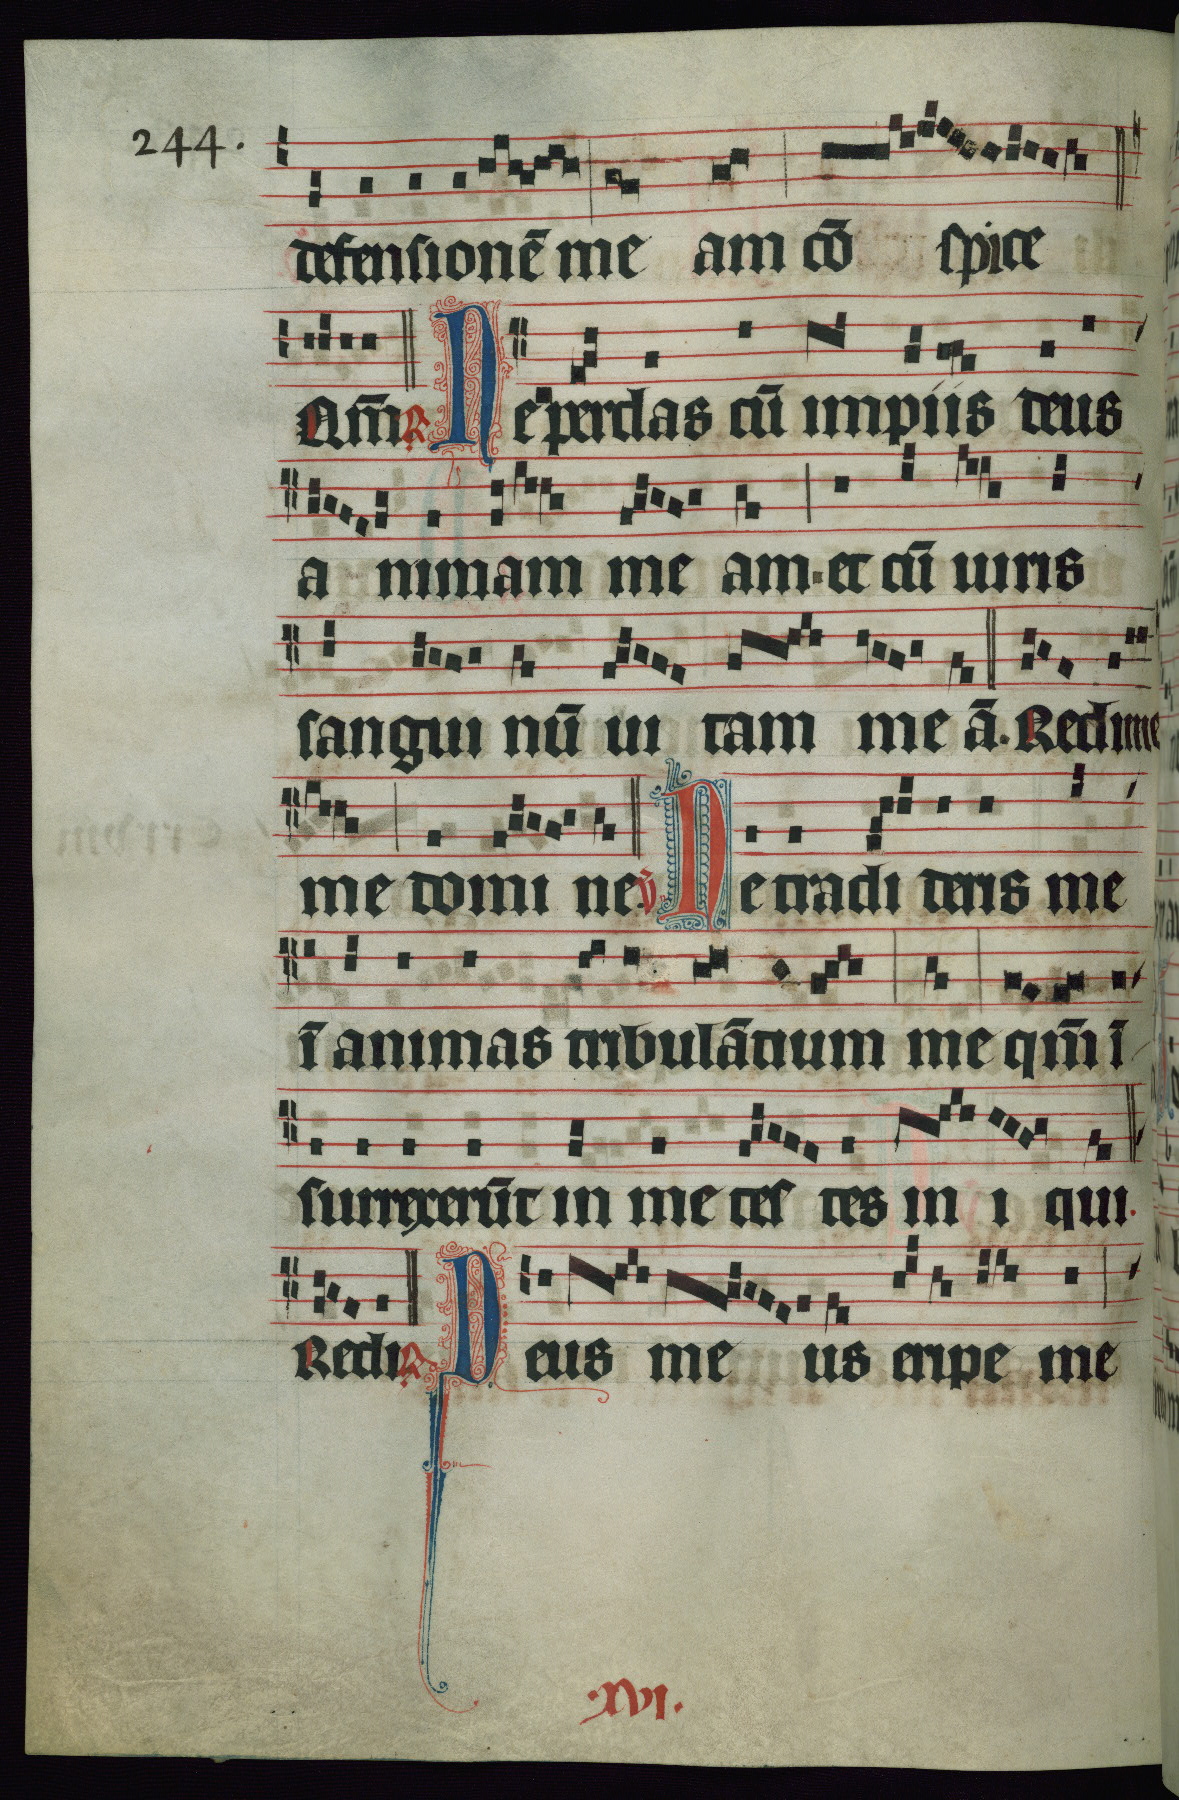 244.
defensionē me am cō spice
Qm̄ R Ne perdas cū impiis deus
a nimam me am et cū uiris
sangui nū ui tam me ā. Redime
me domi ne. V Ne tradi deris me
ī animas tribulātium me qm̄ ī
surrexerūt in me tes tes in i qui.
Redi R Deus me us eripe me
.XVI.